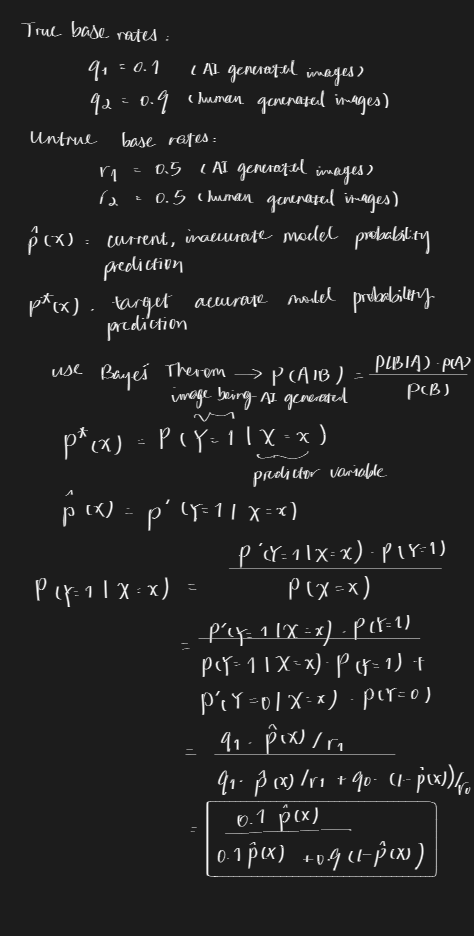 True base rates :
q1 = 0.1 (AI generated images)
q2 = 0.9 (human generated images)
Untrue base rates:
r1 = 0.5 (AI generated images)
r2 = 0.5 (human generated images)
p̂(x) = current, inaccurate model probability
prediction
p*(x) . target accurate model probability
prediction
use Bayes' Therom → P(A|B) = P(B|A) · P(A) / P(B)
image being AI generated
p*(x) = P(Y=1 | X=x)
predictor variable
p̂(x) = p'(Y=1 | X=x)
P(Y=1 | X=x) = P'(Y=1 | X=x) · P(Y=1) / P(X=x)
= P'(Y=1 | X=x) · P(Y=1) /
P(Y=1 | X=x) · P(Y=1) +
P'(Y=0 | X=x) · P(Y=0)
= q1 · p̂(x) / r1 /
q1 · p̂(x) / r1 + q0 · (1-p̂(x)) / r0
= 0.1 p̂(x) /
0.1 p̂(x) + 0.9 (1-p̂(x))